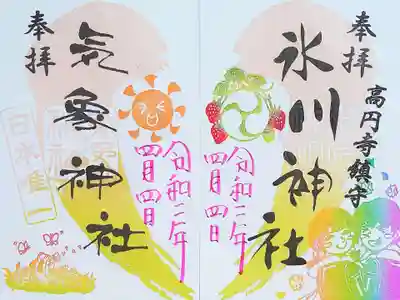 奉拝
高円寺鎮守
氷川神社
令和二年
四月四日
奉拝
気象神社
令和二年
四月四日